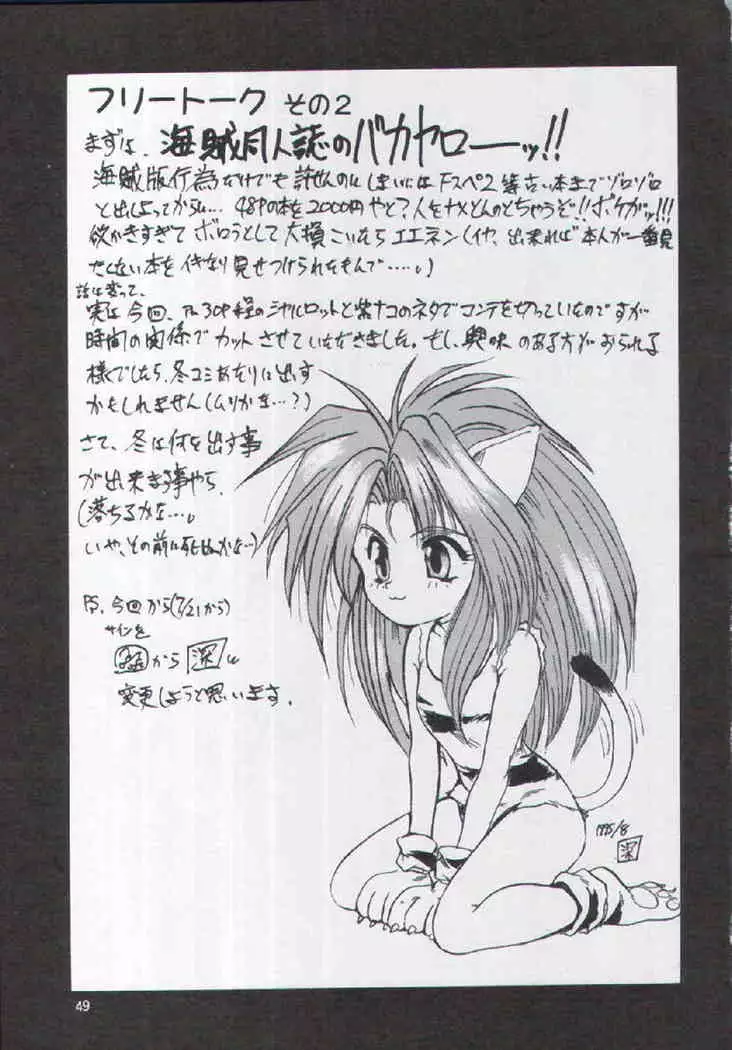 フリートーク その2
まずは、海賊同人誌のバカヤローーッ!!
海賊版行為だけでも許せんのに しまいには Fスペ2 等古い本までゾロゾロ
と出しよってからに… 48Pの本を2000円やと?人をナメとんのとちゃうぞ!!ボケがッ!!!
欲かきすぎて ボロうとして 大損こいたらエエネン(イヤ、出来れば 本人が一番見
たくない本をイキなり見せつけられたもんで……。)
話は変って、
実は今回、30P程のシャルロットと紫ナコのネタでコンテを切っていたのですが
時間の関係で カット させていただきました。もし、興味のある方がおられる
様でしたら、冬コミあたりに出す
かもしれません(ムリかな…?)
さて、冬は何を出す事
が出来ます事やら、
(落ちるかな…。
いや、その前に かな…)
PS.今回から(7/21から)
サインを
から 深 に
変更しようと思います。
1995/8
深
49